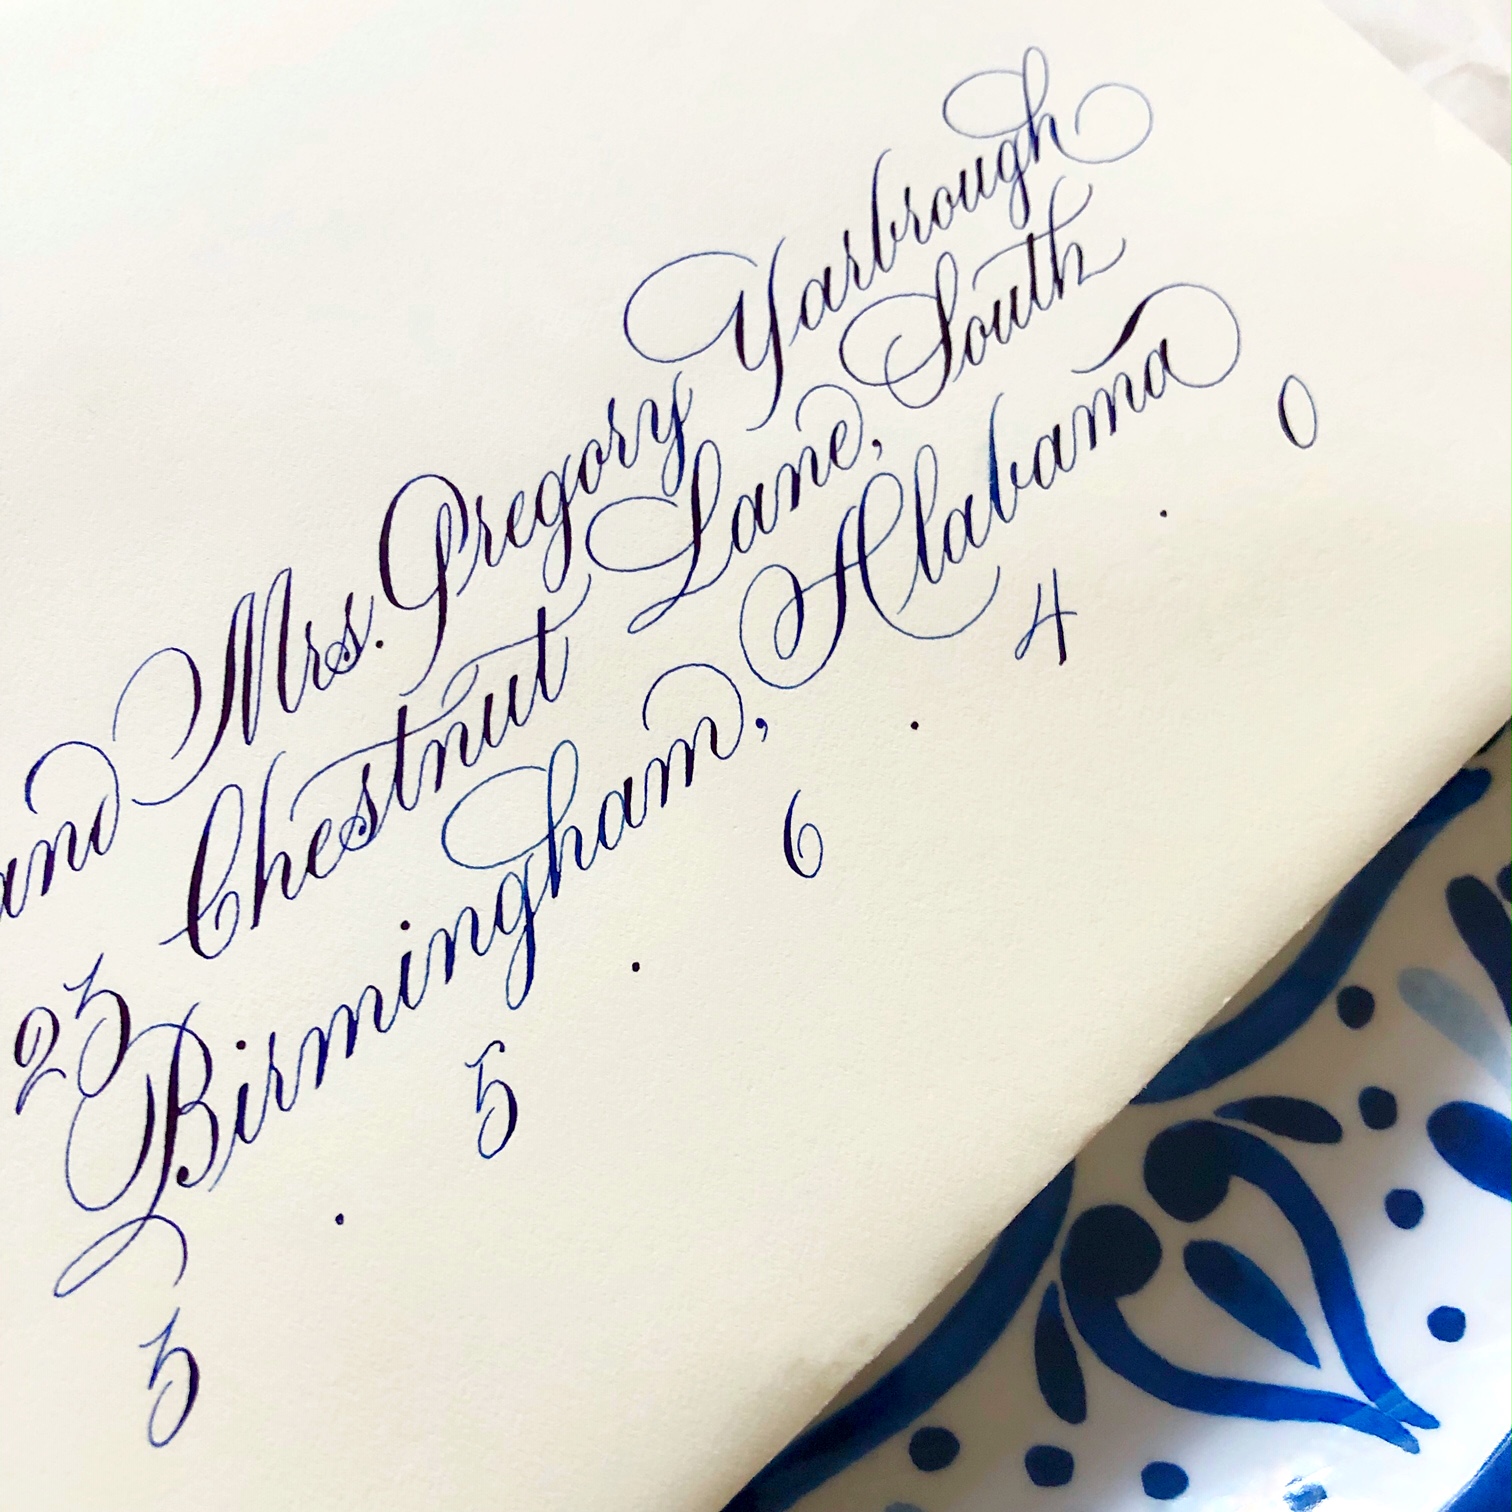 and Mrs. Gregory Yarbrough
23 Chestnut Lane, South
Birmingham, Alabama
3 . 5 . 6 . 4 . 0